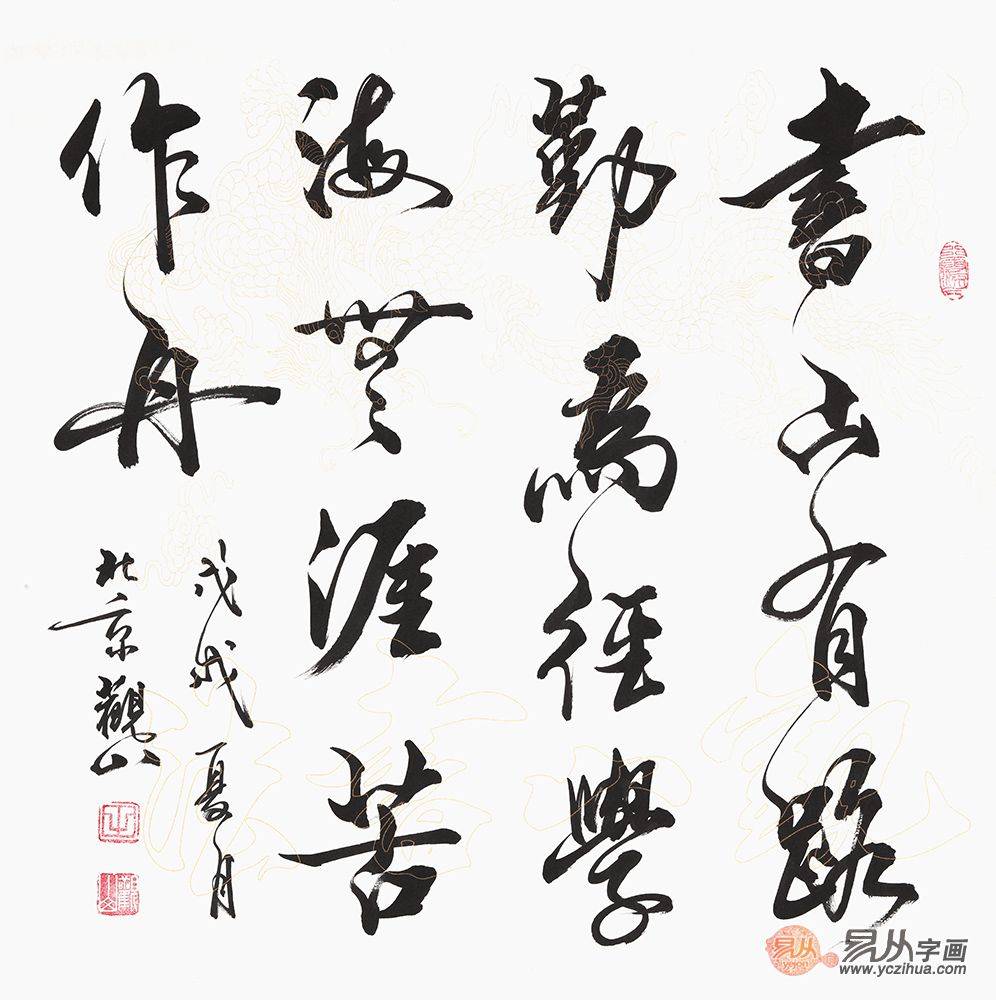 書山有路
勤為徑學
海無涯苦
作舟
戊戌夏月
北京觀山
易从
yejon
易从字画
www.yczihua.com